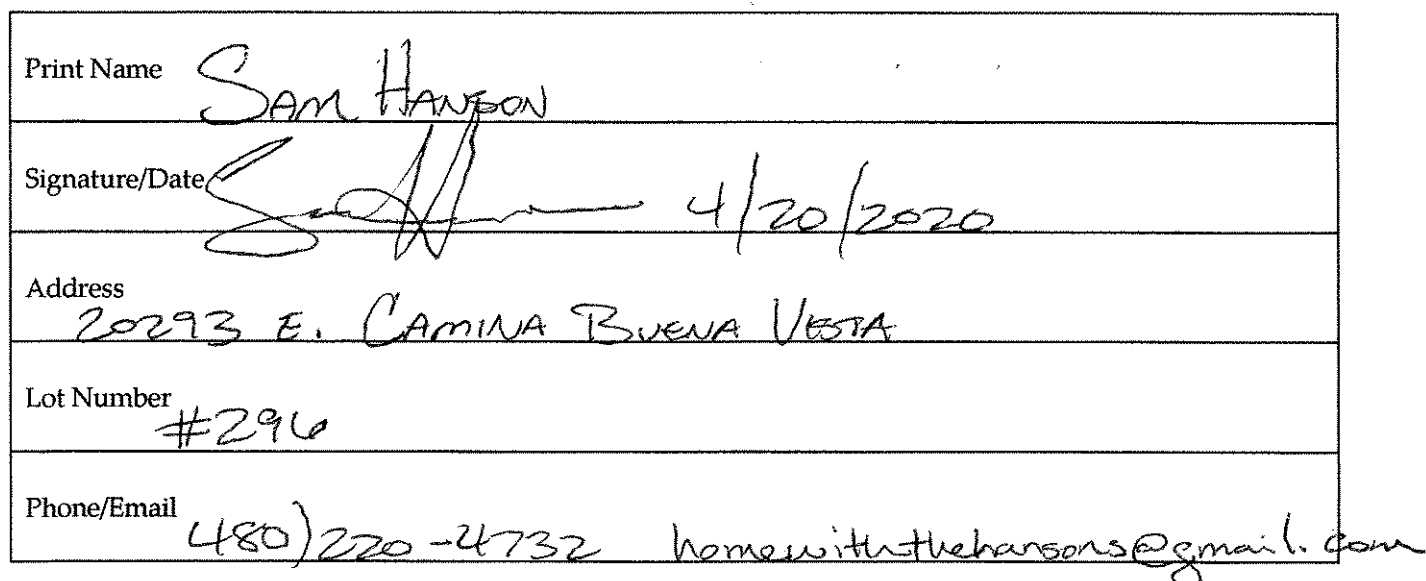 Print Name SAM HANSON
Signature/Date 4/20/2020
Address
20293 E. CAMINA BUENA VISTA
Lot Number #296
Phone/Email 480)220-4732 homewiththehansons@gmail.com